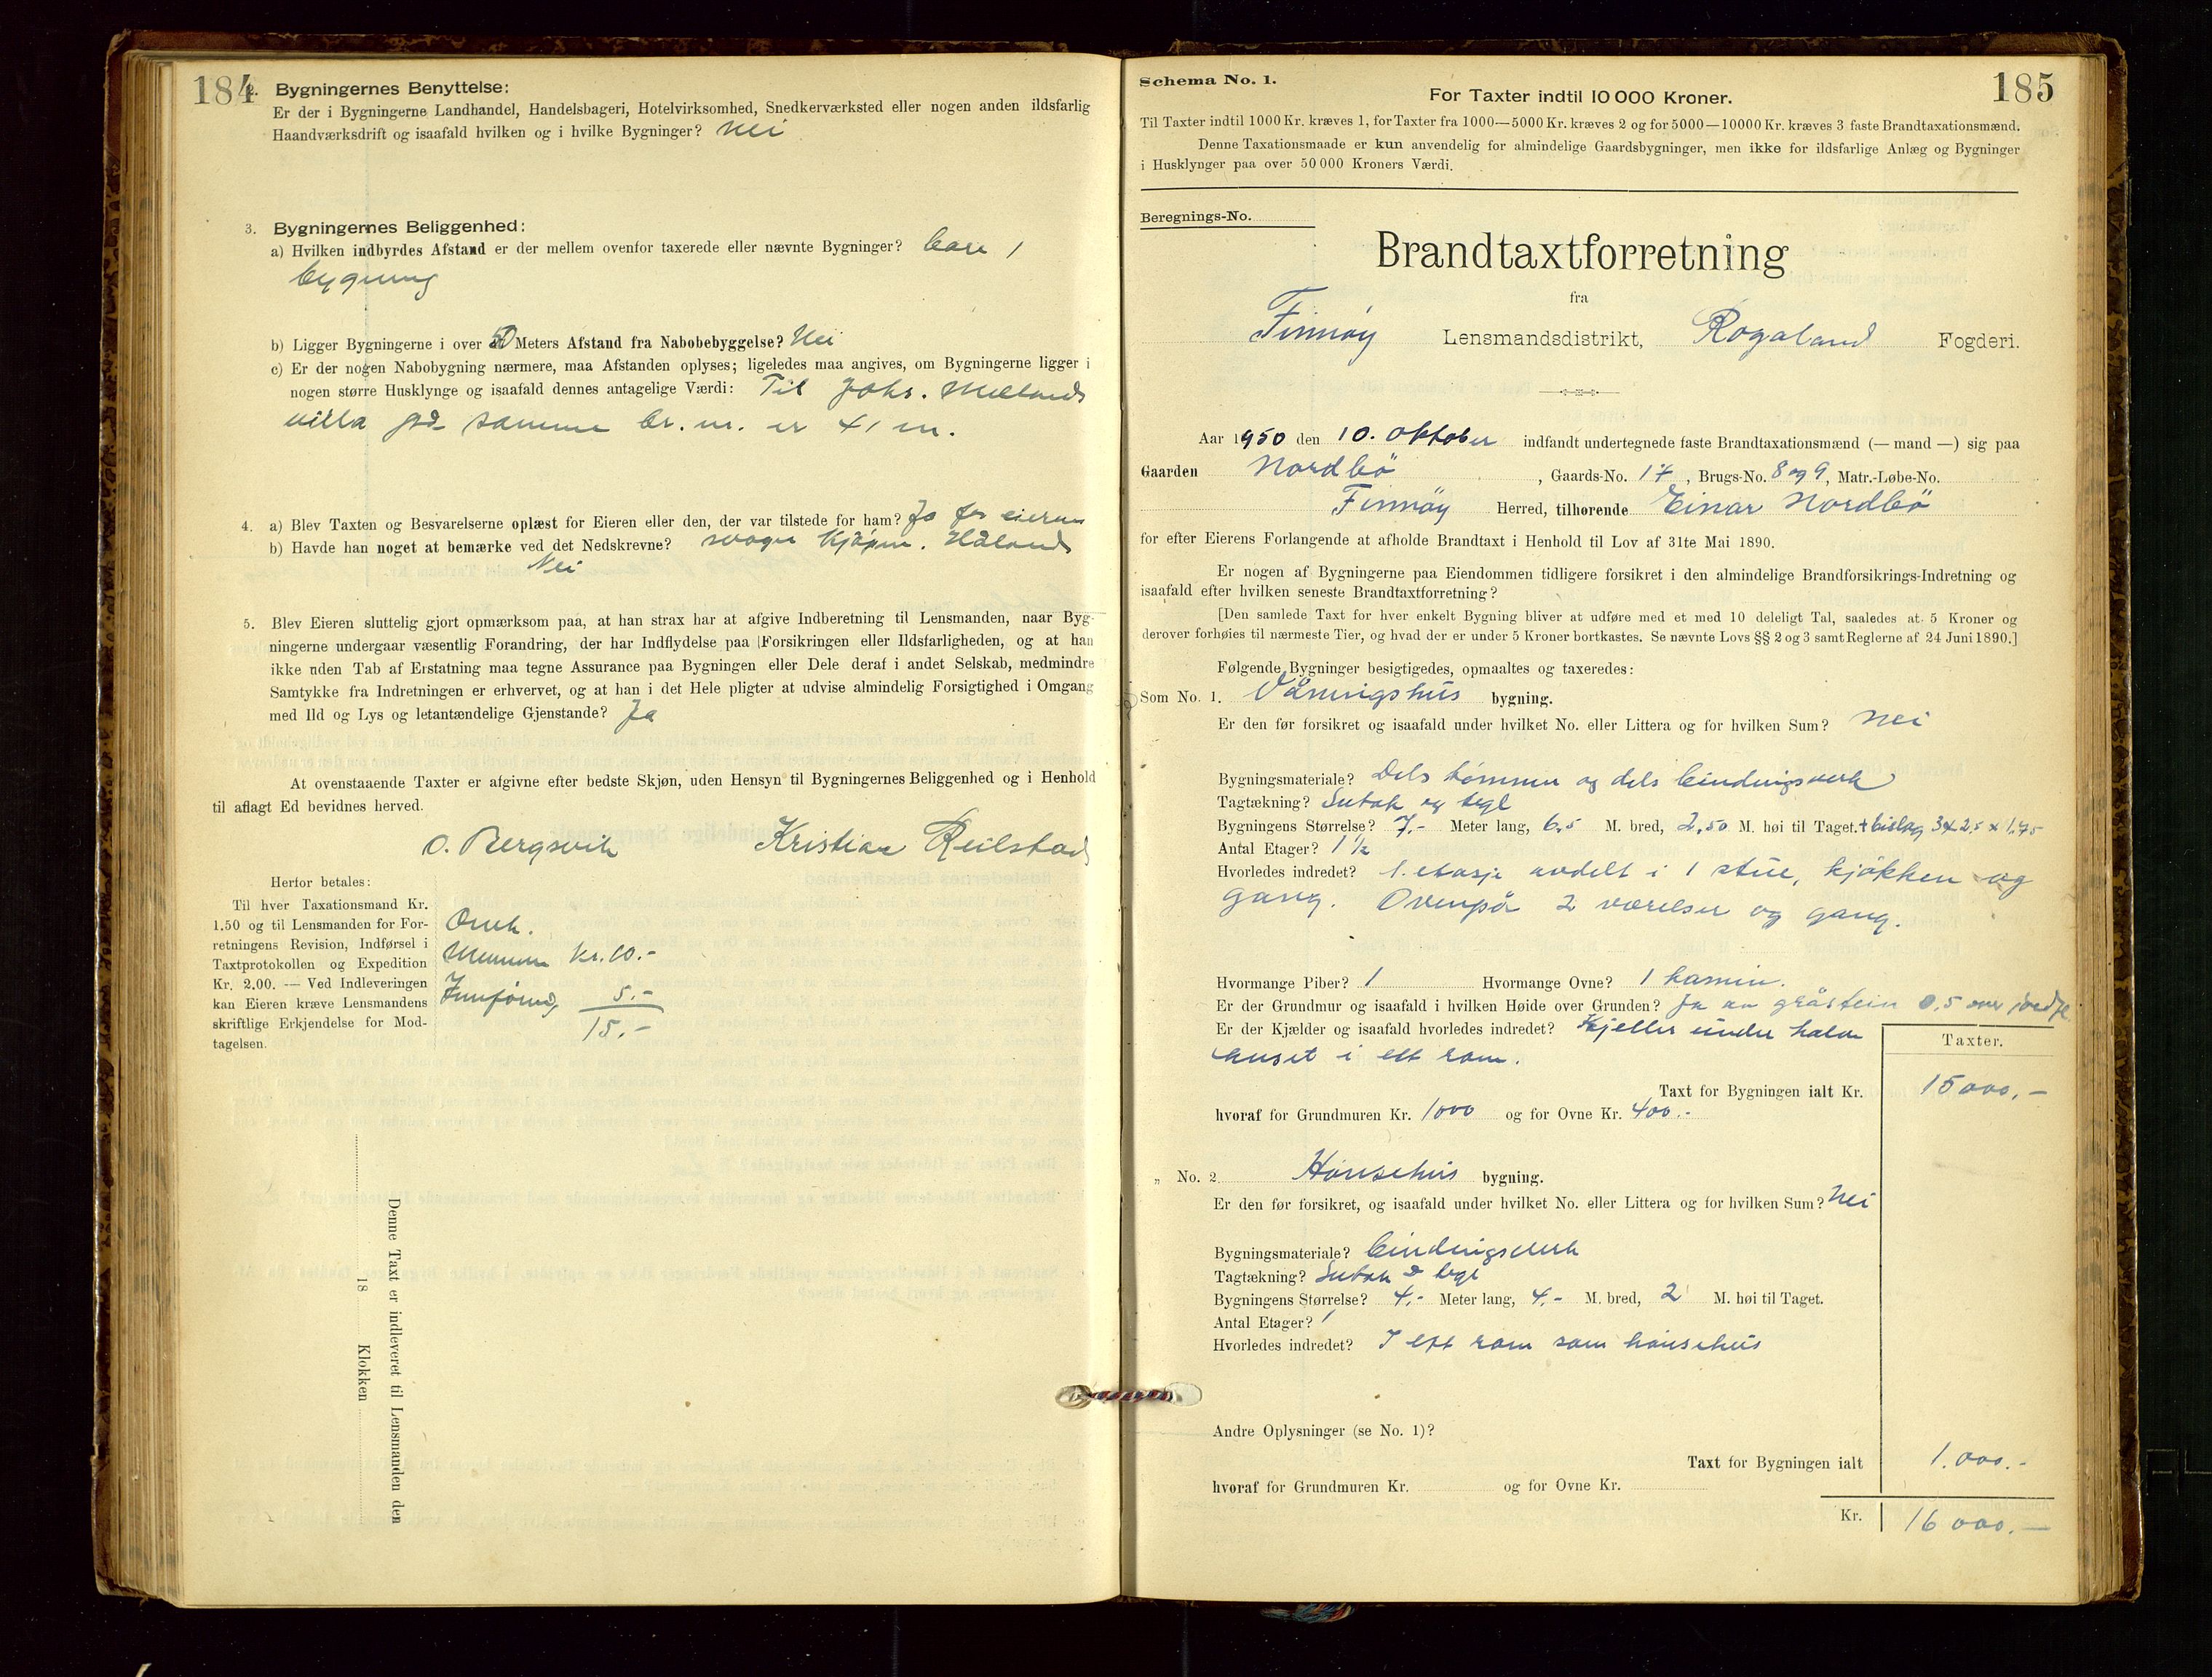 184
2. Bygningernes Benyttelse:
Er der i Bygningerne Landhandel, Handelsbageri, Hotelvirksomhed, Snedkerværksted eller nogen anden ildsfarlig
Haandværksdrift og isaafald hvilken og i hvilke Bygninger? Nei
3. Bygningernes Beliggenhed:
a) Hvilken indbyrdes Afstand er der mellem ovenfor taxerede eller nævnte Bygninger? bare 1
bygning
b) Ligger Bygningerne i over 50 Meters Afstand fra Nabobebyggelse? Nei
c) Er der nogen Nabobygning nærmere, maa Afstanden oplyses; ligeledes maa angives, om Bygningerne ligger i
nogen større Husklynge og isaafald dennes antagelige Værdi: Til Johs. Mælands
villa på samme br.nr. er 41 m.
4. a) Blev Taxten og Besvarelserne oplæst for Eieren eller den, der var tilstede for ham? Ja for eierens
b) Havde han noget at bemærke ved det Nedskrevne? svoger Håland
Nei
5. Blev Eieren sluttelig gjort opmærksom paa, at han strax har at afgive Indberetning til Lensmanden, naar Byg-
ningerne undergaar væsentlig Forandring, der har Indflydelse paa Forsikringen eller Ildsfarligheden, og at han
ikke uden Tab af Erstatning maa tegne Assurance paa Bygningen eller Dele deraf i andet Selskab, medmindre
Samtykke fra Indretningen er erhvervet, og at han i det Hele pligter at udvise almindelig Forsigtighed i Omgang
med Ild og Lys og letantændelige Gjenstande? Ja
At ovenstaaende Taxter er afgivne efter bedste Skjøn, uden Hensyn til Bygningernes Beliggenhed og i Henhold
til aflagt Ed bevidnes herved.
O. Bergsvik Kristian Reilstad
Herfor betales:
Til hver Taxationsmand Kr.
1.50 og til Lensmanden for For-
retningens Revision, Indførsel i
Taxtprotokollen og Expedition
Kr. 2.00. — Ved Indleveringen
kan Eieren kræve Lensmandens
skriftlige Erkjendelse for Mod-
tagelsen.
Omk.
Kr. 10.-
Innföring 5.-
15.-
Denne Taxt er indleveret til Lensmanden den
18 Klokken
Schema No. 1.
185
For Taxter indtil 10 000 Kroner.
Til Taxter indtil 1000 Kr. kræves 1, for Taxter fra 1000—5000 Kr. kræves 2 og for 5000—10000 Kr. kræves 3 faste Brandtaxationsmænd.
Denne Taxationsmaade er kun anvendelig for almindelige Gaardsbygninger, men ikke for ildsfarlige Anlæg og Bygninger
i Husklynger paa over 50 000 Kroners Værdi.
Beregnings-No.
Brandtaxtforretning
fra
Finnöy Lensmandsdistrikt, Rogaland Fogderi.
Aar 1950 den 10. oktober indfandt undertegnede faste Brandtaxationsmænd (— mand —) sig paa
Gaarden Nordbö, Gaards-No. 14, Brugs-No. 8 og 9, Matr.-Løbe-No.
Finnöy Herred, tilhørende Einar Nordbö
for efter Eierens Forlangende at afholde Brandtaxt i Henhold til Lov af 31te Mai 1890.
Er nogen af Bygningerne paa Eiendommen tidligere forsikret i den almindelige Brandforsikrings-Indretning og
isaafald efter hvilken seneste Brandtaxtforretning?
[Den samlede Taxt for hver enkelt Bygning bliver at udføre med et med 10 deleligt Tal, saaledes at 5 Kroner og
derover forhøies til nærmeste Tier, og hvad der er under 5 Kroner bortkastes. Se nævnte Lovs §§ 2 og 3 samt Reglerne af 24 Juni 1890.]
Følgende Bygninger besigtigedes, opmaaltes og taxeredes:
Som No. 1. Våningshus bygning.
Er den før forsikret og isaafald under hvilket No. eller Littera og for hvilken Sum? Nei
Bygningsmateriale? Dels tömmer og dels bindingsverk
Tagtækning? Sutak og tegl
Bygningens Størrelse? 7.- Meter lang, 6,5 M. bred, 2,50 M. høi til Taget. + bislag 3 x 2,5 x 1,75
Antal Etager? 1½
Hvorledes indredet? 1. etasje avdelt i 1 stue, kjökken og
gang. Ovenpå 2 værelser og gang.
Hvormange Piber? 1 Hvormange Ovne? 1 kamin.
Er der Grundmur og isaafald i hvilken Høide over Grunden? Ja av gråstein 0,5 over
Er der Kjælder og isaafald hvorledes indredet? Kjeller under halve
huset i ett rom.
Taxter.
Taxt for Bygningen ialt Kr. 15000.-
hvoraf for Grundmuren Kr. 1000 og for Ovne Kr. 400.-
„ No. 2. Hönsehus bygning.
Er den før forsikret, og isaafald under hvilket No. eller Littera og for hvilken Sum? Nei
Bygningsmateriale? bindingsverk
Tagtækning? Sutak & tegl
Bygningens Størrelse? 4.- Meter lang, 4.- M. bred, 2 M. høi til Taget.
Antal Etager? 1
Hvorledes indredet? I ett rom som hönsehus
Andre Oplysninger (se No. 1)?
Taxt for Bygningen ialt 1.000.-
hvoraf for Grundmuren Kr. og for Ovne Kr.
Kr. 16000.-